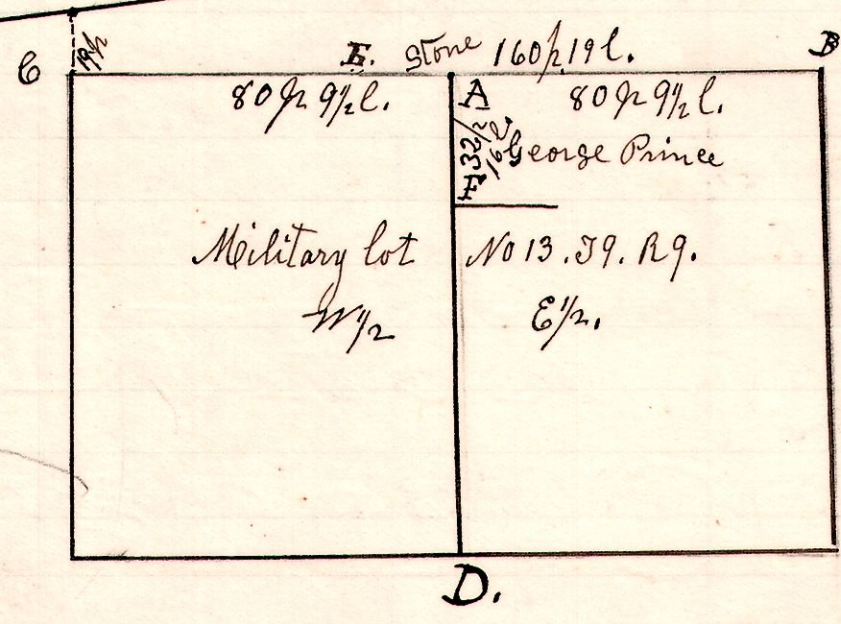 C 19½ E. Stone 160p 19l. B
80p 9½l. A 80p 9½l.
32p 16l
George Prince
F
Military lot No 13. T9. R9.
W½ E½.
D.